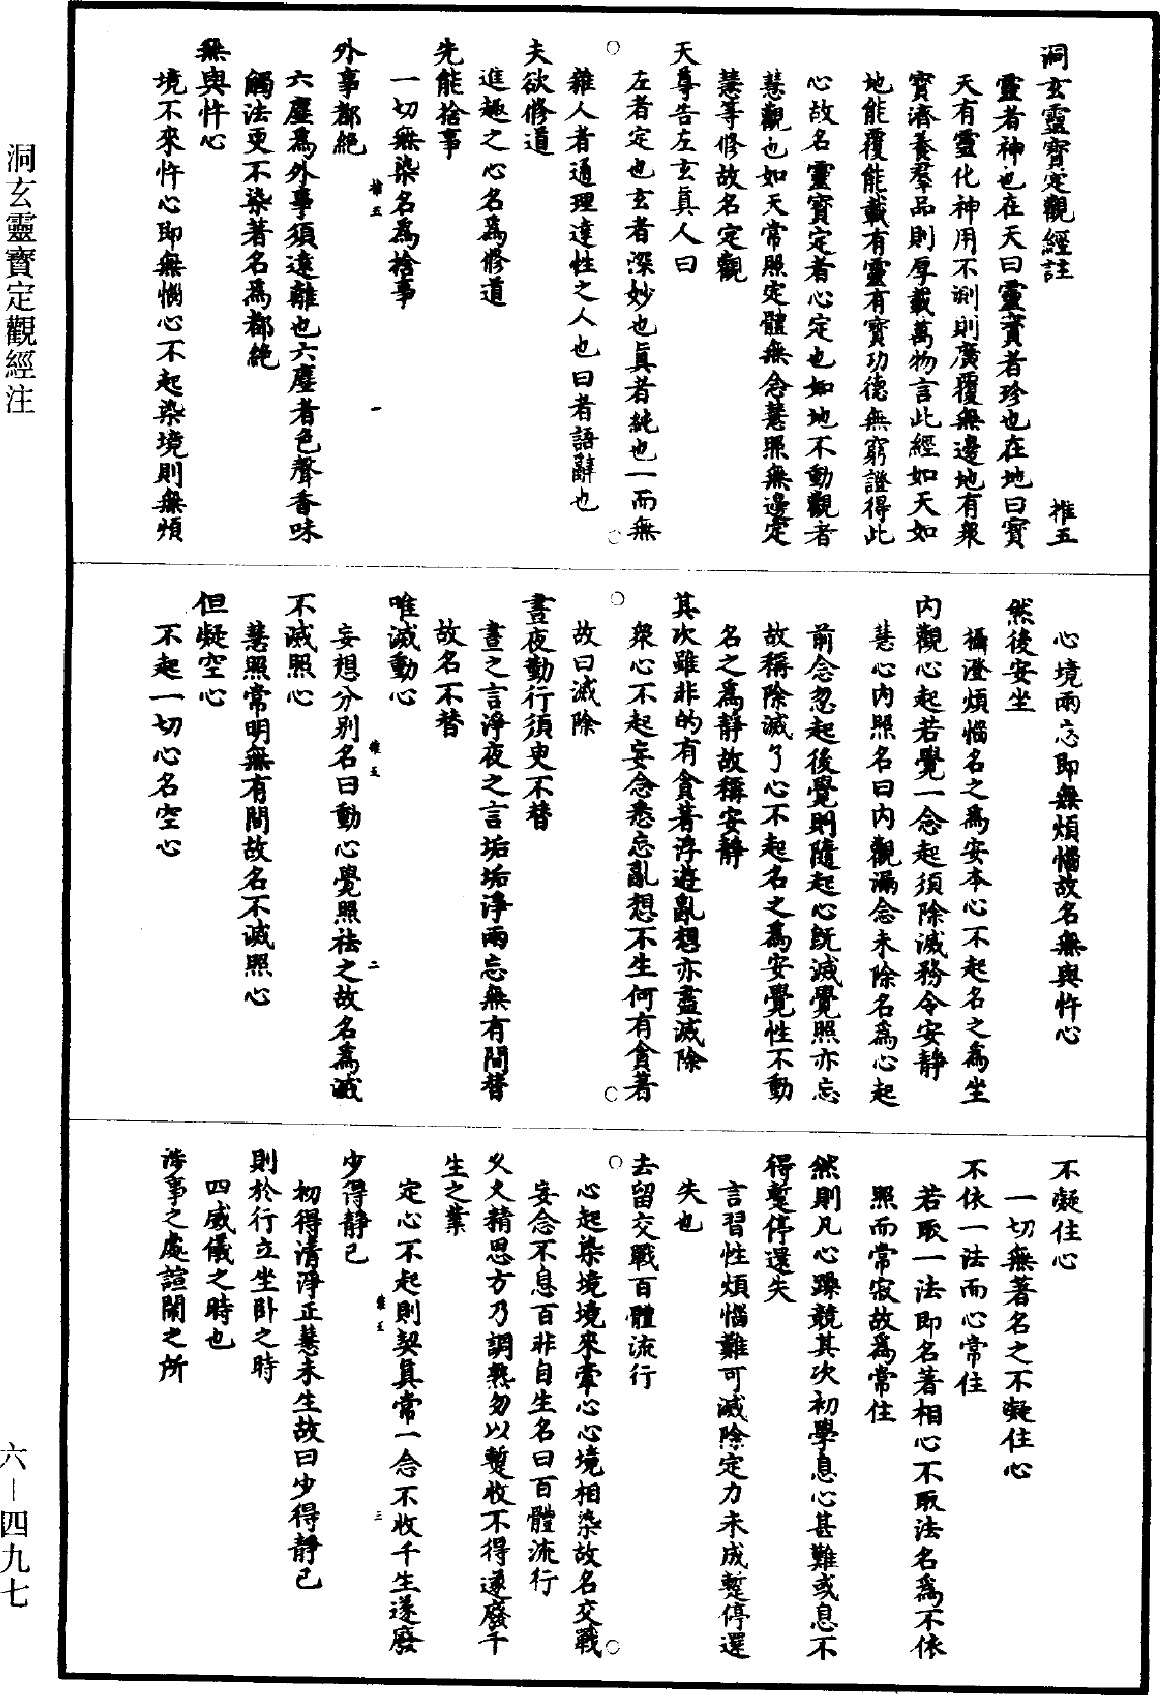 洞玄靈寶定觀經註
推五
靈者神也在天曰靈寶者珍也在地曰寶
天有靈化神用不測則廣覆無邊地有衆
寶濟養羣品則厚載萬物言此經如天如
地能覆能載有靈有寶功德無窮證得此
心故名靈寶定者心定也如地不動觀者
慧觀也如天常照定體無念慧照無邊定
慧等修故名定觀
天尊告左玄真人曰
左者定也玄者深妙也真者純也一而無
雜人者通理達性之人也曰者語辭也
夫欲修道
進趣之心名為修道
先能捨事
一切無染名為捨事
推五
一
外事都絶
六塵為外事須遠離也六塵者色聲香味
觸法更不染著名為都絶
無與忤心
境不來忤心即無惱心不起染境則無煩
心境兩忘即無煩惱故名無與忤心
然後安坐
攝澄煩惱名之為安本心不起名之為坐
內觀心起若覺一念起須除滅務令安靜
慧心內照名曰內觀漏念未除名為心起
前念忽起後覺則隨起心既滅覺照亦忘
故稱除滅了心不起名之為安覺性不動
名之為靜故稱安靜
其次雖非的有貪著浮遊亂想亦盡滅除
衆心不起妄念悉忘亂想不生何有貪著
故曰滅除
晝夜勤行須臾不替
晝之言淨夜之言垢垢淨兩忘無有間替
故名不替
唯滅動心
推五
二
妄想分別名曰動心覺照祛之故名為滅
不滅照心
慧照常明無有間故名不滅照心
但凝空心
不起一切心名空心
不凝住心
一切無著名之不凝住心
不依一法而心常住
若取一法即名著相心不取法名為不依
照而常寂故為常住
然則凡心躁競其次初學息心甚難或息不
得蹔停還失
言習性煩惱難可滅除定力未成蹔停還
失也
去留交戰百體流行
心起染境境來牽心心境相染故名交戰
妄念不息百非自生名曰百體流行
久久精思方乃調熟勿以蹔收不得遂廢千
生之業
定心不起則契真常一念不收千生遂廢
推五
三
少得靜已
初得清淨正慧未生故曰少得靜已
則於行立坐卧之時
四威儀之時也
涉事之處諠鬧之所
洞玄靈寶定觀經注
六—四九七